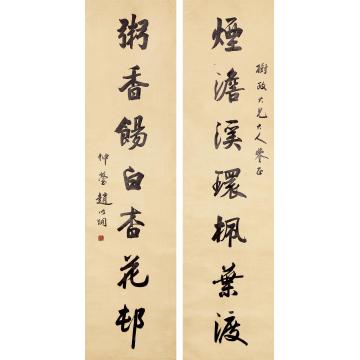 煙澹溪環楓葉渡
樹政大兄大人察正
粥香餳白杏花邨
仲瑩趙以炯